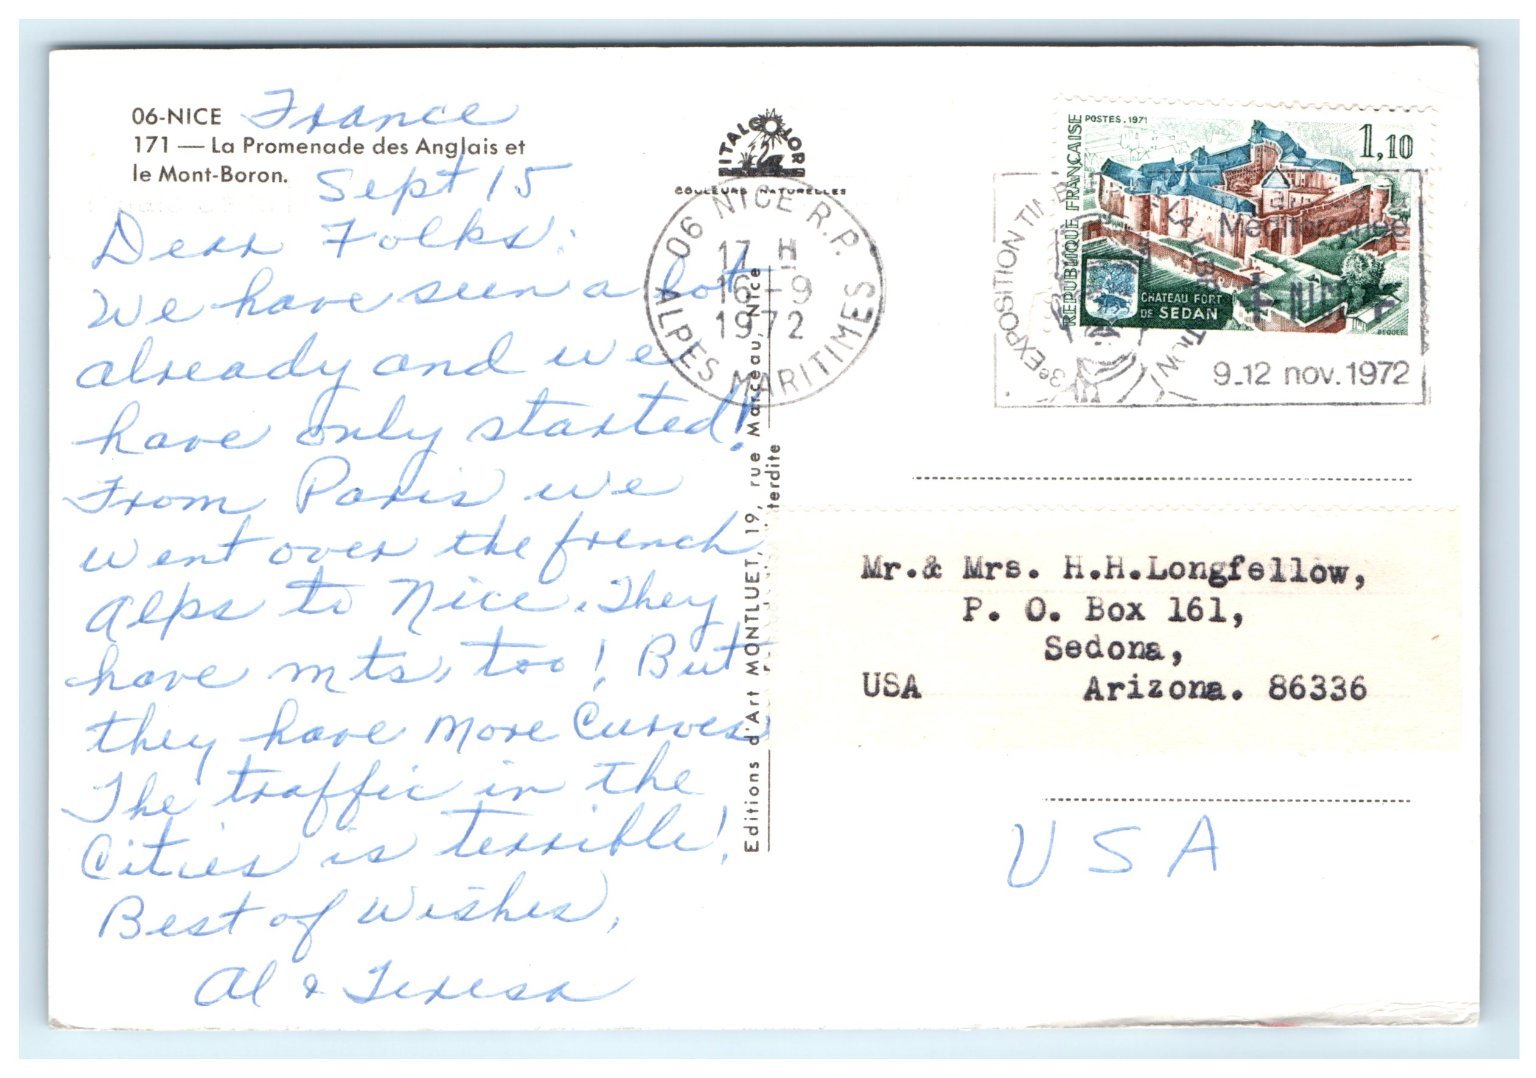 06-NICE France
171 — La Promenade des Anglais et
le Mont-Boron.
Sept 15
Dear Folks:
We have seen a lot
already and we
have only started!
From Paris we
went over the french
alps to Nice. They
have mts, too! But
they have more Curves
The traffic in the
Cities is terrible!
Best of Wishes,
Al & Teresa
ITALCOLOR
COULEURS NATURELLES
Editions d'Art MONTLUET, 19, rue Marceau, Nice
terdite
06 NICE R.P.
17 H
16-9
1972
ALPES MARITIMES
POSTES.1971
1,10
REPUBLIQUE FRANÇAISE
CHATEAU FORT
DE SEDAN
3e EXPOSITION
Méditerranée
NICE
9_12 nov.1972
Mr.& Mrs. H.H.Longfellow,
P. O. Box 161,
Sedona,
USA Arizona. 86336
USA